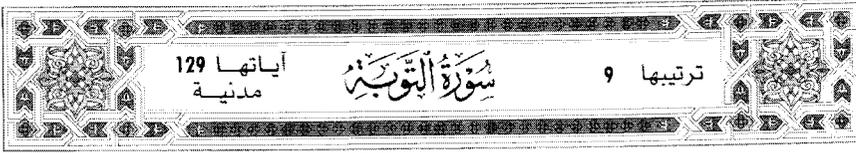 ترتيبها 9
سُورَةُ التَّوبَةِ
آياتها 129
مدنية